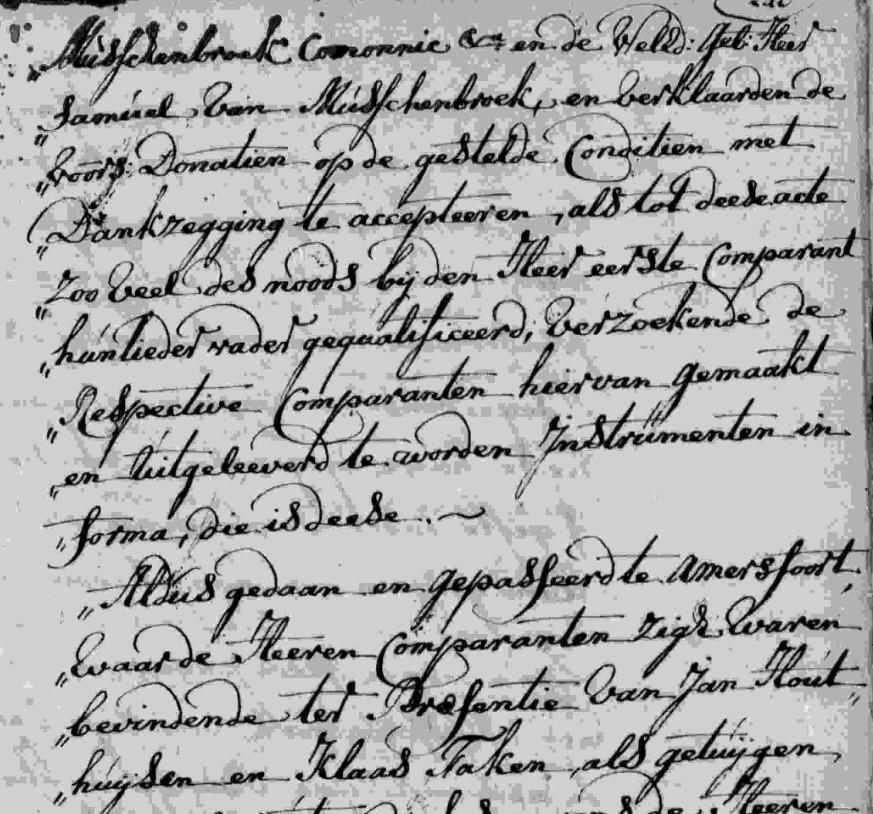 „Musschenbroek Comonnie &ca en de WelEd: Geb: Heer
„Samuel van Musschenbroek, en verklaarden de
„voors: Donatien op de gestelde Conditien met
„Dankzegging te accepteeren, als tot deese acte
„zoo veel des noods bij den Heer eerste Comparant
„hunlieder vader gequalificeerd, verzoekende de
„Respective Comparanten hiervan gemaakt
„en uitgeleeverd te worden Instrumenten in
„forma, die is deese. ~
„Aldus gedaan en gepasseerd te Amersfoort,
„waar de Heeren Comparanten zigh waren
„bevindende ter Præsentie van Jan Hout„
„huijsen en Klaas Taken, als getuijgen,
de Heeren